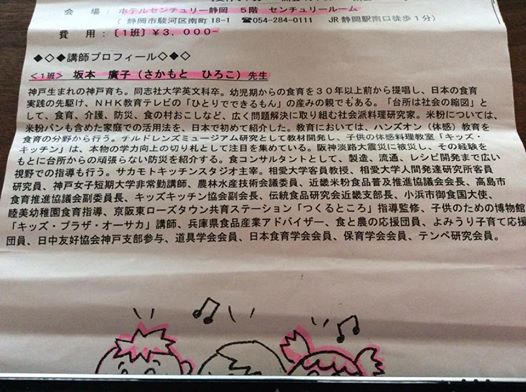 会　場　：　ホテルセンチュリー静岡　５階　センチュリールーム
（静岡市駿河区南町18-1　☎054-284-0111　　JR静岡駅南口徒歩1分）
費　用：〔1班〕¥3,000-
◆◇◆講師プロフィール◇◆◇
＜1班＞ 坂本　廣子（さかもと　ひろこ）先生
神戸生まれの神戸育ち。同志社大学英文科卒。幼児期からの食育を３０年以上前から提唱し、日本の食育
実践の先駆け、ＮＨＫ教育テレビの「ひとりでできるもん」の産みの親でもある。「台所は社会の縮図」と
して、食育、介護、防災、食の村おこしなど、広く問題解決に取り組む社会派料理研究家。米粉については、
米粉パンも含めた家庭での活用法を、日本で初めて紹介した。教育においては、ハンズオン（体感）教育を
食育の分野から行う。チルドレンズミュージアム研究として教材開発し、子供の体感料理教室「キッズ・
キッチン」は、本物の学力向上の切り札として注目を集めている。阪神淡路大震災に被災し、その経験を
もとに台所からの頑張らない防災を紹介する。食コンサルタントとして、製造、流通、レシピ開発まで広い
視野での指導も行う。サカモトキッチンスタジオ主宰。相愛大学客員教授、相愛大学人間発達研究所客員
研究員、神戸女子短期大学非常勤講師、農林水産技術会議委員、近畿米粉食品普及推進協議会会長、高島市
食育推進協議会副委員長、キッズキッチン協会副会長、伝統食品研究会近畿支部長、小浜市御食国大使、
睦美幼稚園食育指導、京阪東ローズタウン共育ステーション「つくるところ」指導監修、子供のための博物館
「キッズ・プラザ・オーサカ」講師、兵庫県食品産業アドバイザー、食と農の応援団員、よみうり子育て応援
団員、日中友好協会神戸支部参与、道具学会会員、日本食育学会会員、保育学会会員、テンペ研究会員。